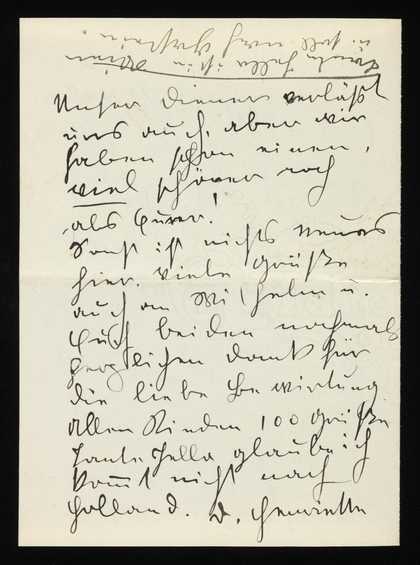 Unser Diener verläßt
uns auch, aber wir
haben schon einen,
viel schöner noch
als Eurer!
Sonst ist nichts neues
hier. Viele Grüße
auch an Wilhelm u.
Euch beiden nochmals
herzlichen Dank für
die liebe Bewirtung
allen Kinden 100 Grüße
Tante Jella glaube ich
kom̅t nicht nach
Holland. D. Henriette
Tante Jella ist in Wien
u. soll nach Gastein.